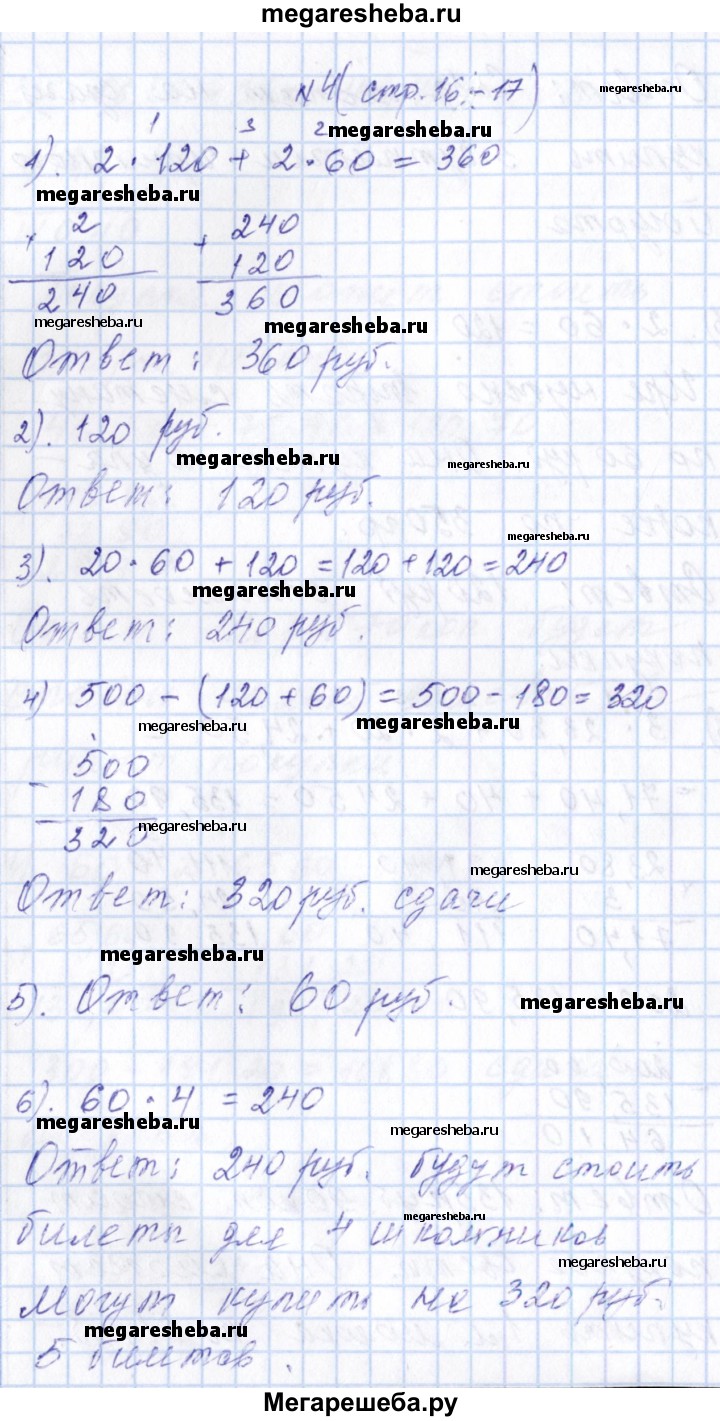 megaresheba.ru
№4 (стр. 16-17)
megaresheba.ru
1 3 2
megaresheba.ru
1). 2 · 120 + 2 · 60 = 360
megaresheba.ru
2 240
× 120 + 120
240 360
megaresheba.ru
megaresheba.ru
Ответ: 360 руб.
2). 120 руб.
megaresheba.ru
megaresheba.ru
Ответ: 120 руб.
megaresheba.ru
3). 20 · 60 + 120 = 120 + 120 = 240
megaresheba.ru
Ответ: 240 руб.
4) 500 - (120 + 60) = 500 - 180 = 320
megaresheba.ru
megaresheba.ru
500
- 180
320
megaresheba.ru
megaresheba.ru
Ответ: 320 руб. сдачи
megaresheba.ru
5). Ответ: 60 руб.
megaresheba.ru
6). 60 · 4 = 240
megaresheba.ru
megaresheba.ru
Ответ: 240 руб. будут стоить
megaresheba.ru
билеты для 4 школьников
megaresheba.ru
Могут купить на 320 руб.
megaresheba.ru
5 билетов.
Мегарешеба.ру